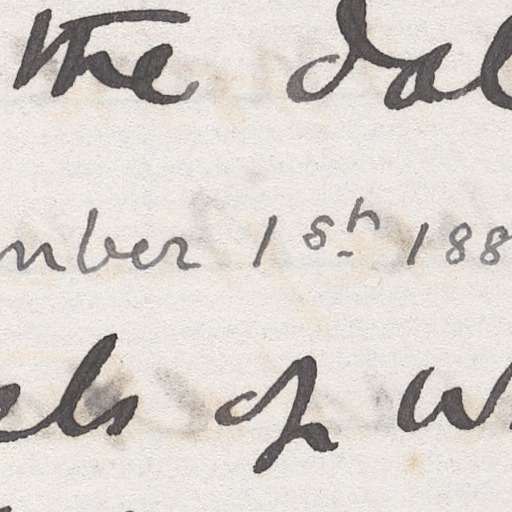 the dal
mber 1st 188
els of w